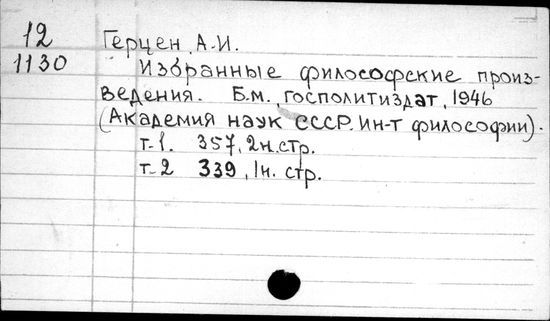 12 Герцен, А.И.
1130 Избранные философские произ-
ведения. Б.м., госполитиздат, 1946
(Академия наук СССР. Ин-т философии).
т.1. 357, 2н.стр.
т.2 339, 1н. стр.